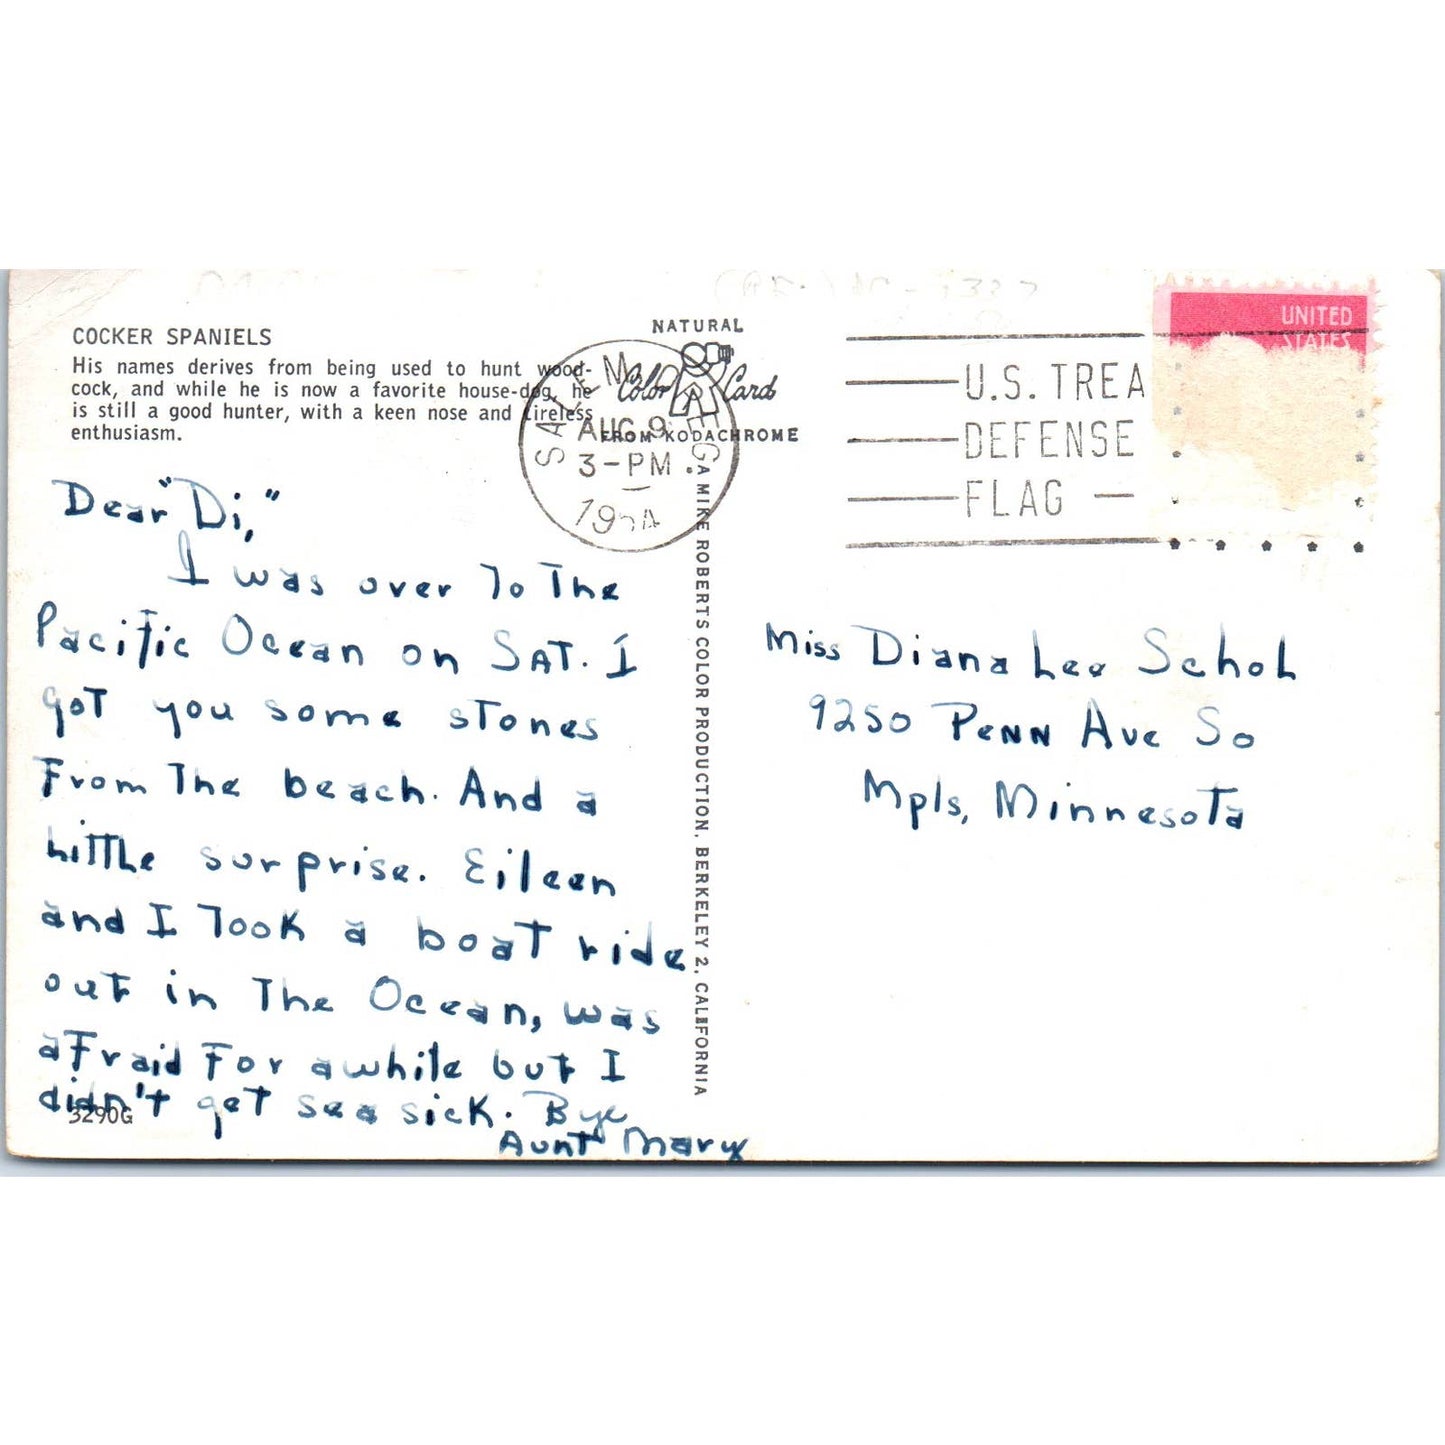 COCKER SPANIELS
His names derives from being used to hunt wood-
cock, and while he is now a favorite house-dog, he
is still a good hunter, with a keen nose and tireless
enthusiasm.
Dear "Di,"
I was over To The
Pacific Ocean on SAT. I
got you some stones
From The beach. And a
little surprise. Eileen
and I Took a boat ride
out in The Ocean, was
afraid For awhile but I
didn't get sea sick. Bye
Aunt Mary
3290G
NATURAL
Color Card
FROM KODACHROME
SALEM OREG.
AUG 9
3-PM
A MIKE ROBERTS COLOR PRODUCTION, BERKELEY 2, CALIFORNIA
U.S. TREA
DEFENSE
FLAG —
UNITED
STATES
Miss Diana Lee Schol
9250 Penn Ave So
Mpls, Minnesota